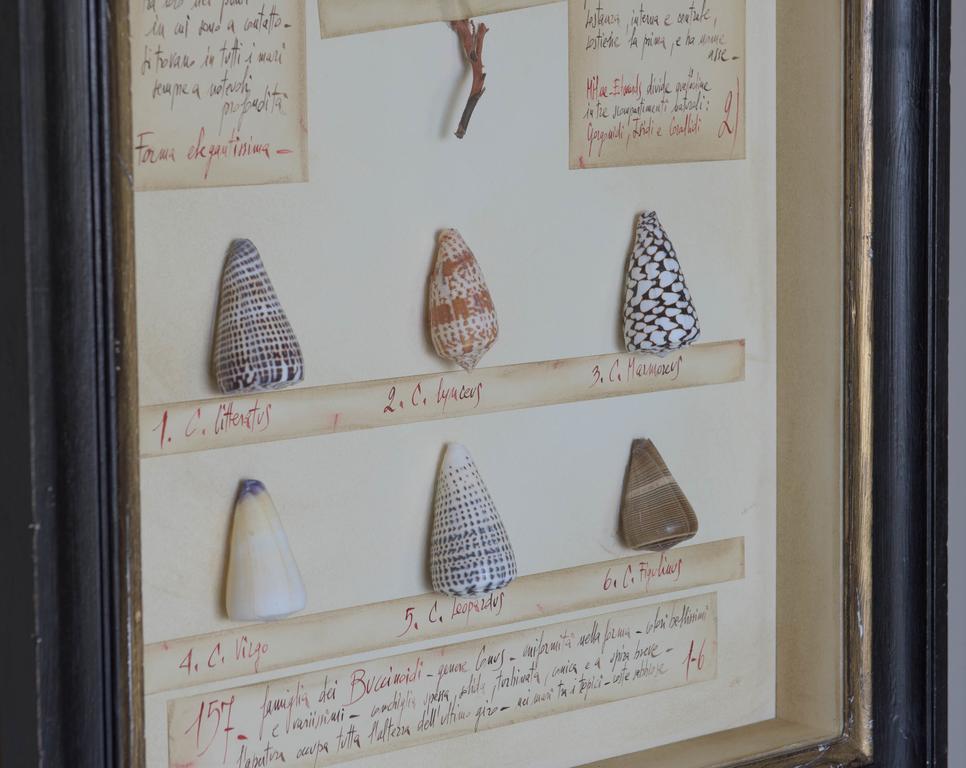 in cui sono a contatto -
si trovano in tutti i mari
sempre a notevoli
profondità
Forma elegantissima -
sostanza, interna e centrale,
sostiene la prima, e ha nome
asse -
Milne-Edwards divide
in tre scompartimenti naturali:
Gorgonidi, Isidi e Corallidi 2)
1. C. litteratus
2. C. lynceus
3. C. Marmoreus
4. C. Virgo
5. C. leopardus
6. C. Figulinus
157- famiglia dei Buccinoidi - genere Conus - uniformità nella forma - colori bellissimi
e variissimi - conchiglia spessa, solida, turbinata, conica e a spira breve -
l'apertura occupa tutta l'altezza dell'ultimo giro - nei mari tropici - coste sabbiose 1-6